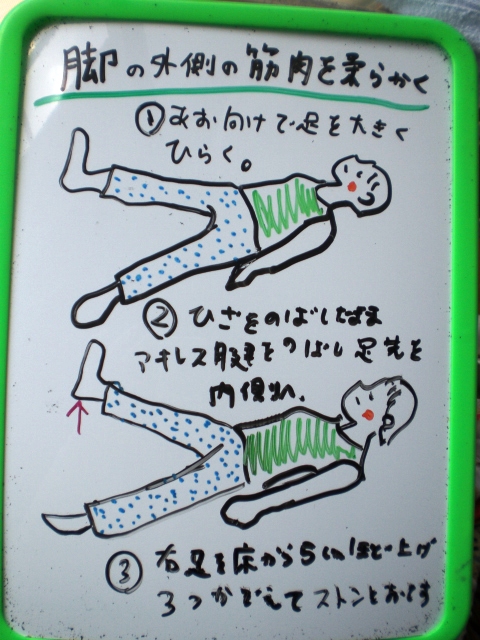 脚の外側の筋肉を柔らかく
①あお向けで足を大きく
ひらく。
②ひざをのばしたまま
アキレス腱をのばし足先を
内側に、
③右足を床から5cmほど上げ
3つかぞえてストンとおとす